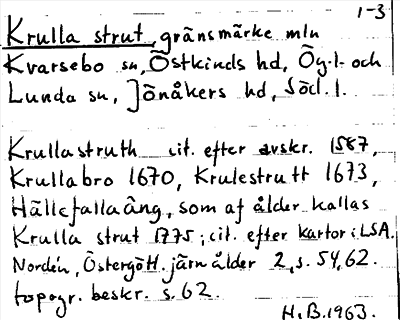 1-3
Krulla strut, gränsmärke mln
Kvarsebo sn, Östkinds hd, Ög.l. och
Lunda sn, Jönåkers hd, Södl.
Krullastruth cit. efter avskr. 1587,
Krullabro 1670, Krulestrutt 1673,
Hällefallaäng, som af ålder kallas
Krulla strut 1775; cit. efter kartor i LSA.
Nordén, Östergötl. järnålder 2, s. 54, 62.
topogr. beskr. s. 62.
H.B. 1963.